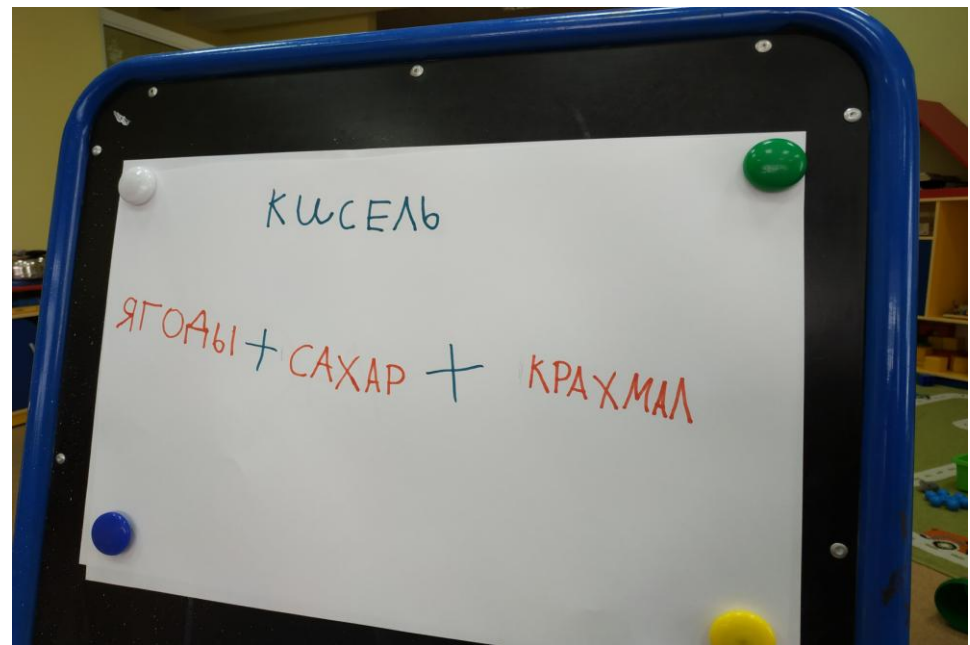 КИСЕЛЬ
ЯГОДЫ + САХАР + КРАХМАЛ